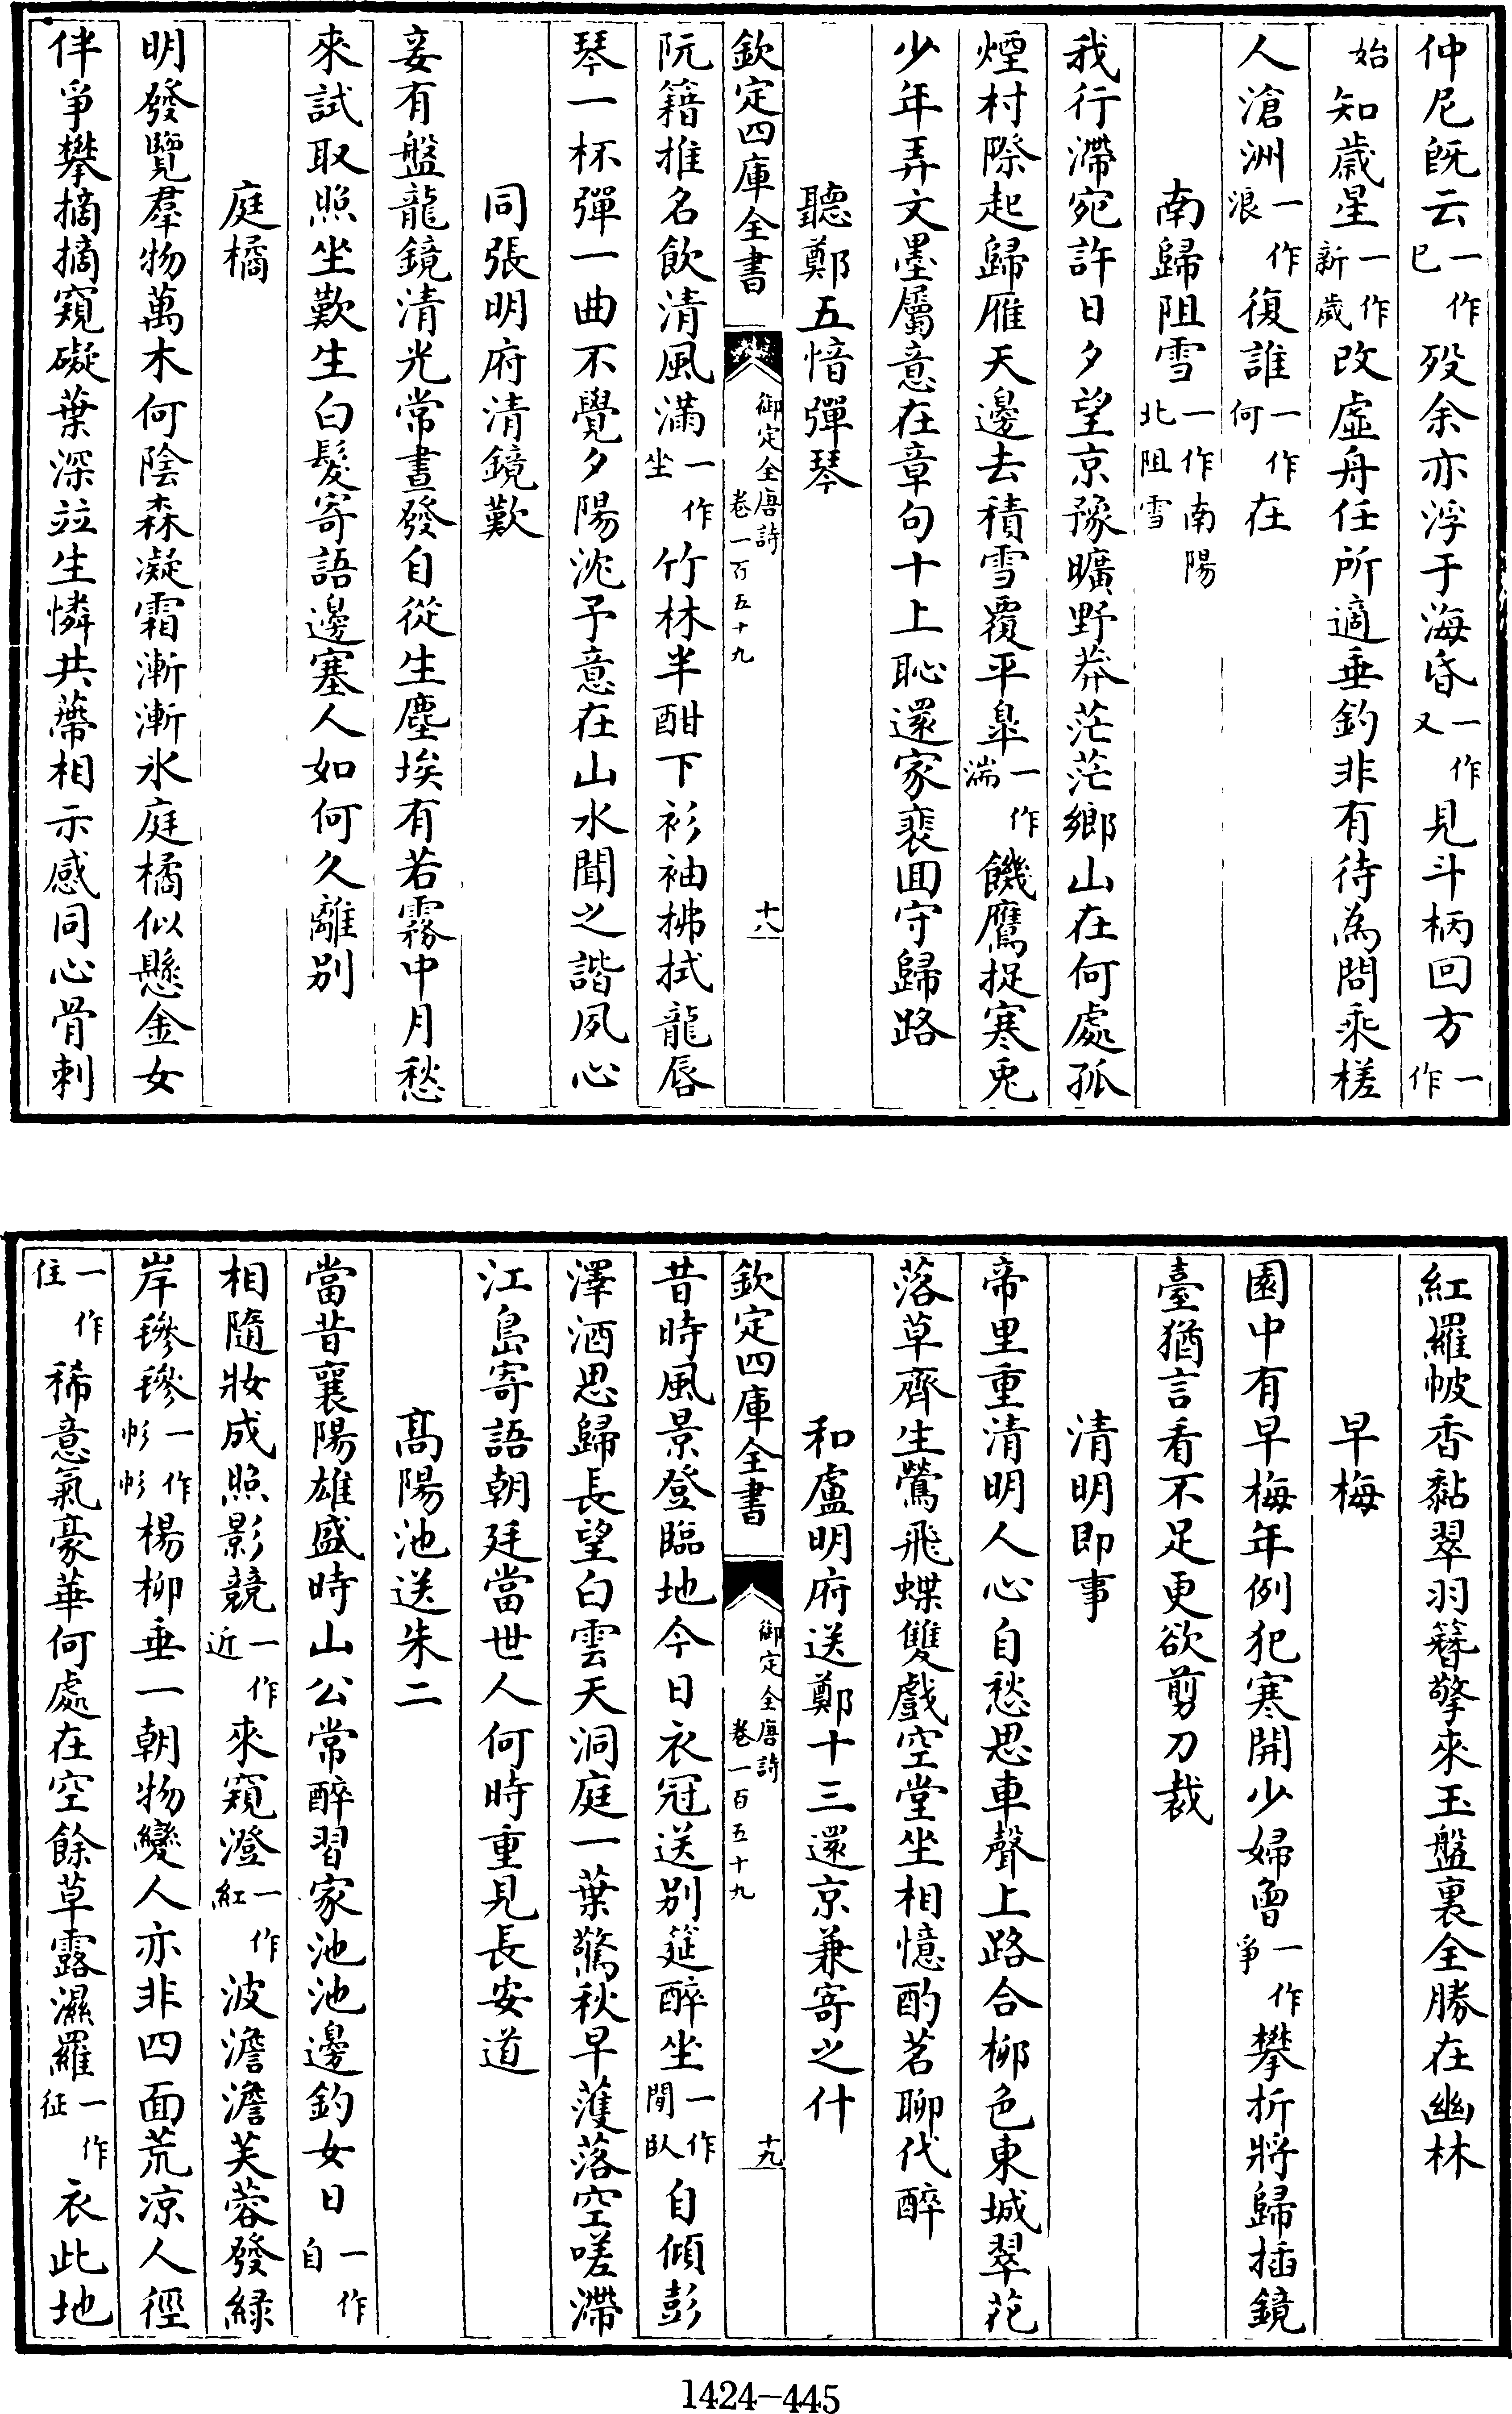 仲尼既云一作已歿余亦浮于海昏一作又見斗柄回方一作
始知歲星一作新歲改虛舟任所適垂釣非有待為問乘槎
人滄洲一作浪復誰一作何在
南歸阻雪一作南陽北阻雪
我行滯宛許日夕望京豫曠野莽茫茫鄉山在何處孤
煙村際起歸雁天邊去積雪覆平臯一作湍饑鷹捉寒兎
少年弄文墨屬意在章句十上恥還家裴囬守歸路
聽鄭五愔彈琴
欽定四庫全書 御定全唐詩卷一百五十九 十八
阮籍推名飲清風滿一作坐竹林半酣下衫袖拂拭龍唇
琴一杯彈一曲不覺夕陽沈予意在山水聞之諧夙心
同張明府清鏡歎
妾有盤龍鏡清光常晝發自從生塵埃有若霧中月愁
來試取照坐歎生白髮寄語邊塞人如何久離别
庭橘
明發覽羣物萬木何陰森凝霜漸漸氷庭橘似懸金女
伴爭攀摘摘窺礙葉深竝生憐共蔕相示感同心骨刺
紅羅帔香黏翠羽簪擎來玉盤裏全勝在幽林
早梅
園中有早梅年例犯寒開少婦曾一作爭攀折將歸插鏡
臺猶言看不足更欲剪刀裁
清明即事
帝里重清明人心自愁思車聲上路合柳色東城翠花
落草齊生鶯飛蝶雙戲空堂坐相憶酌茗聊代醉
和盧明府送鄭十三還京兼寄之什
欽定四庫全書 御定全唐詩卷一百五十九 十九
昔時風景登臨地今日衣冠送别筵醉坐一作閒臥自傾彭
澤酒思歸長望白雲天洞庭一葉驚秋早濩落空嗟滯
江島寄語朝廷當世人何時重見長安道
髙陽池送朱二
當昔襄陽雄盛時山公常醉習家池池邊釣女日一作自
相隨妝成照影競一作近來窺澄一作紅波澹澹芙蓉發綠
岸毿毿一作㣋㣋楊柳垂一朝物變人亦非四面荒凉人徑
一作住稀意氣豪華何處在空餘草露濕羅一作征衣此地
1424-445